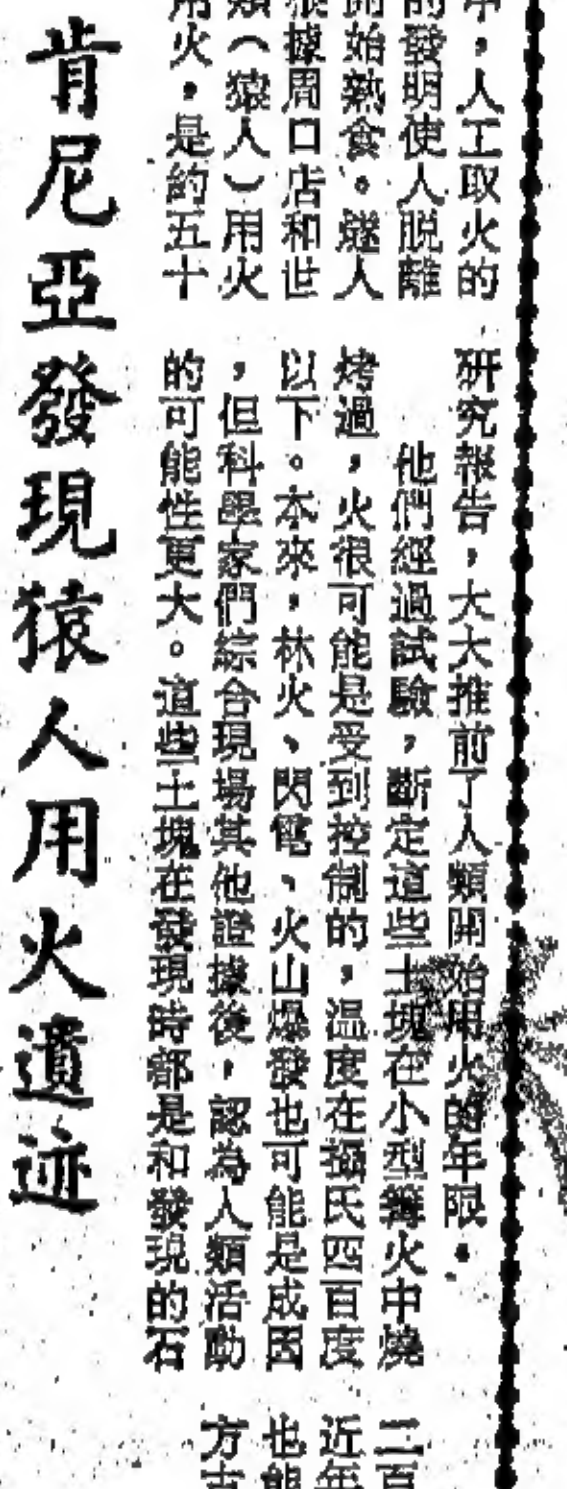 肯尼亞發現猿人用火遺迹
中，人工取火的
的發明使人脫離
開始熟食。燧人
根據周口店和世
類（猿人）用火
用火，是約五十
研究報告，大大推前了人類開始用火的年限。
他們經過試驗，斷定這些土塊在小型篝火中燒
烤過，火很可能是受到控制的，溫度在攝氏四百度
以下。本來，林火、閃電、火山爆發也可能是成因
，但科學家們綜合現場其他證據後，認為人類活動
的可能性更大。這些土塊在發現時都是和發現的石
二百
近年
也能
方古